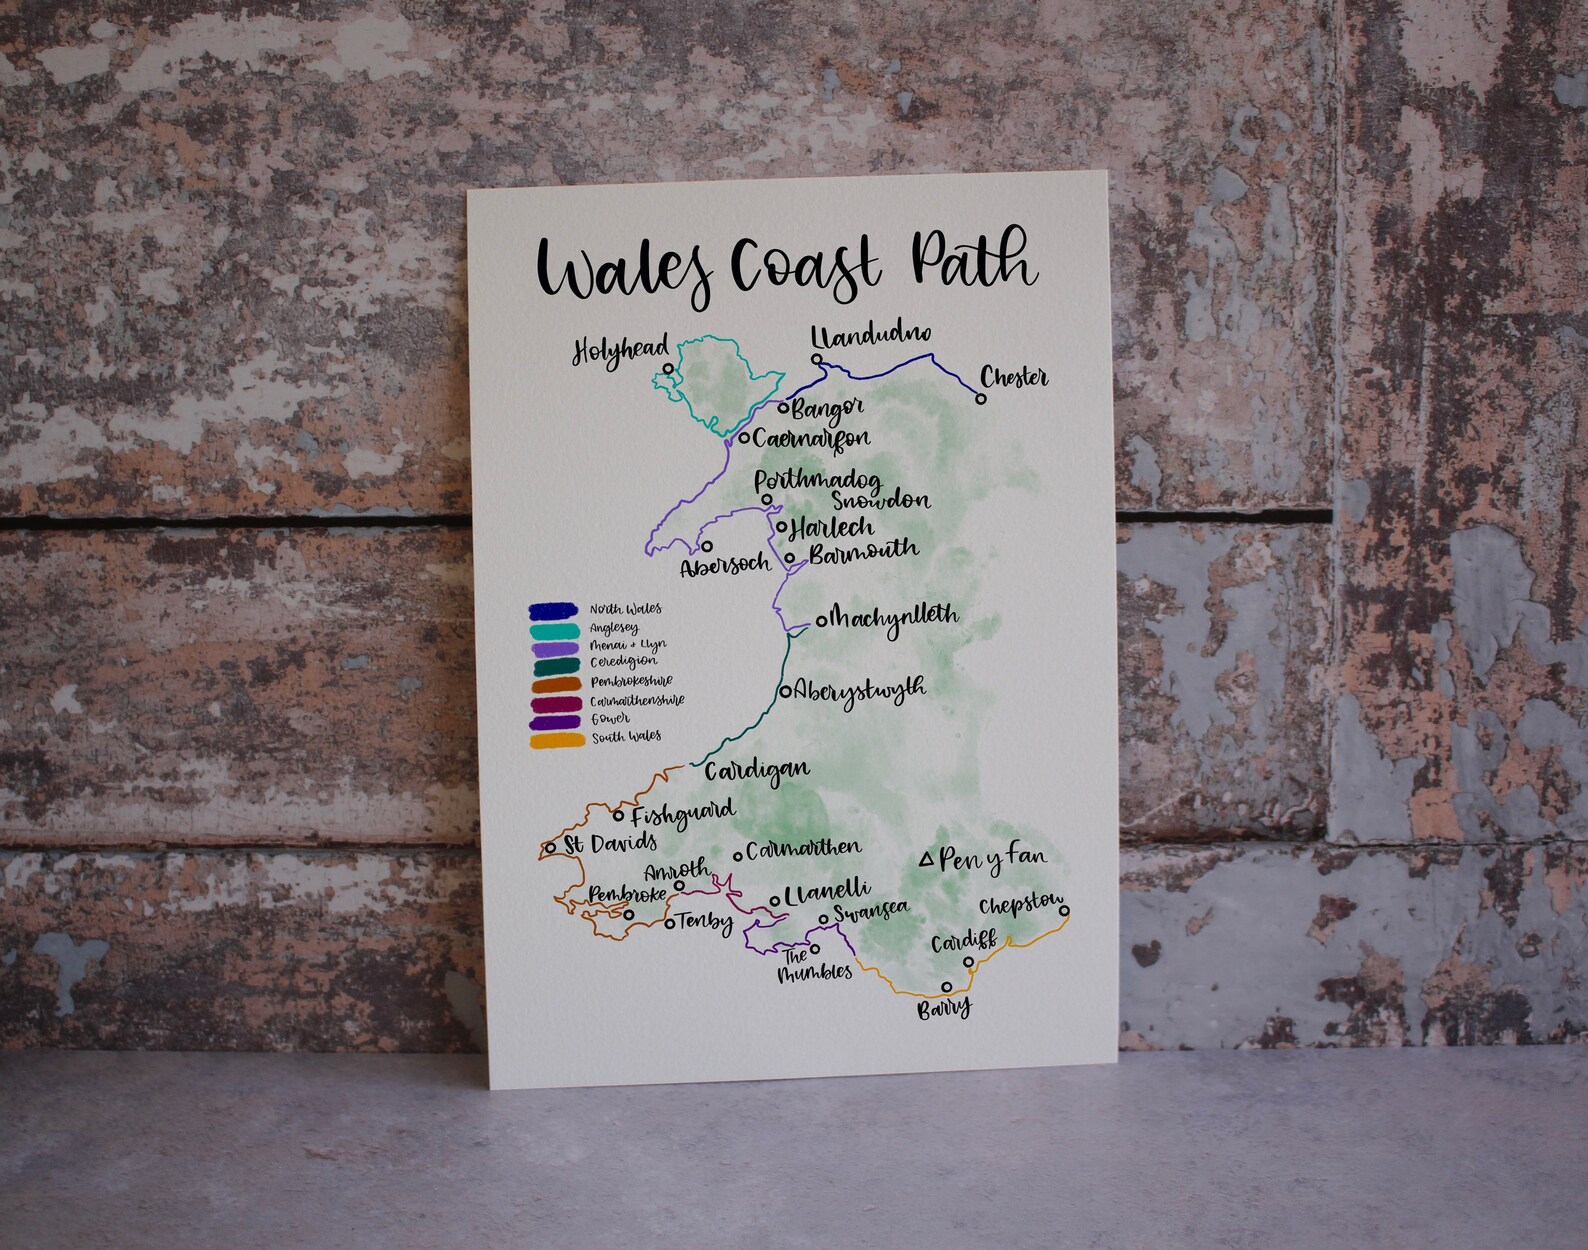 Wales Coast Path
Holyhead
Llandudno
Chester
Bangor
Caernarfon
Porthmadog
Snowdon
Harlech
Abersoch
Barmouth
Machynlleth
North Wales
Anglesey
Menai + Llyn
Ceredigion
Pembrokeshire
Carmarthenshire
Gower
South Wales
Aberystwyth
Cardigan
Fishguard
St Davids
Carmarthen
Pen y Fan
Amroth
Pembroke
Llanelli
Tenby
Swansea
Chepstow
The
Mumbles
Cardiff
Barry